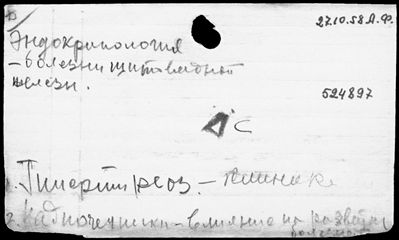 27.10.58 А.Ф.
Эндокринология
– болезни щитовидной
железы.
524897
С
1. Гипертиреоз. – клиника
2. Надпочечники – влияние на развитие